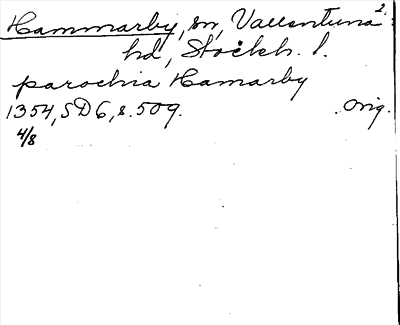 2.
Hammarby, sn, Vallentuna
hd, Stockh. l.
parochia Hamarby
1354, SD6, s. 509. Orig.
4/8